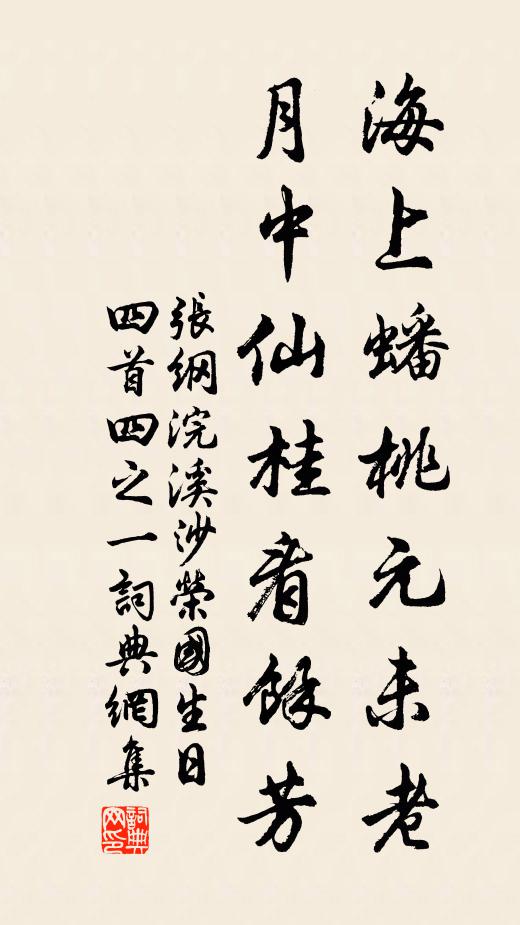 海上蟠桃元未老
月中仙桂看餘芳
張綱浣溪沙榮國生日
四首四之一詞典網集
詞典網印